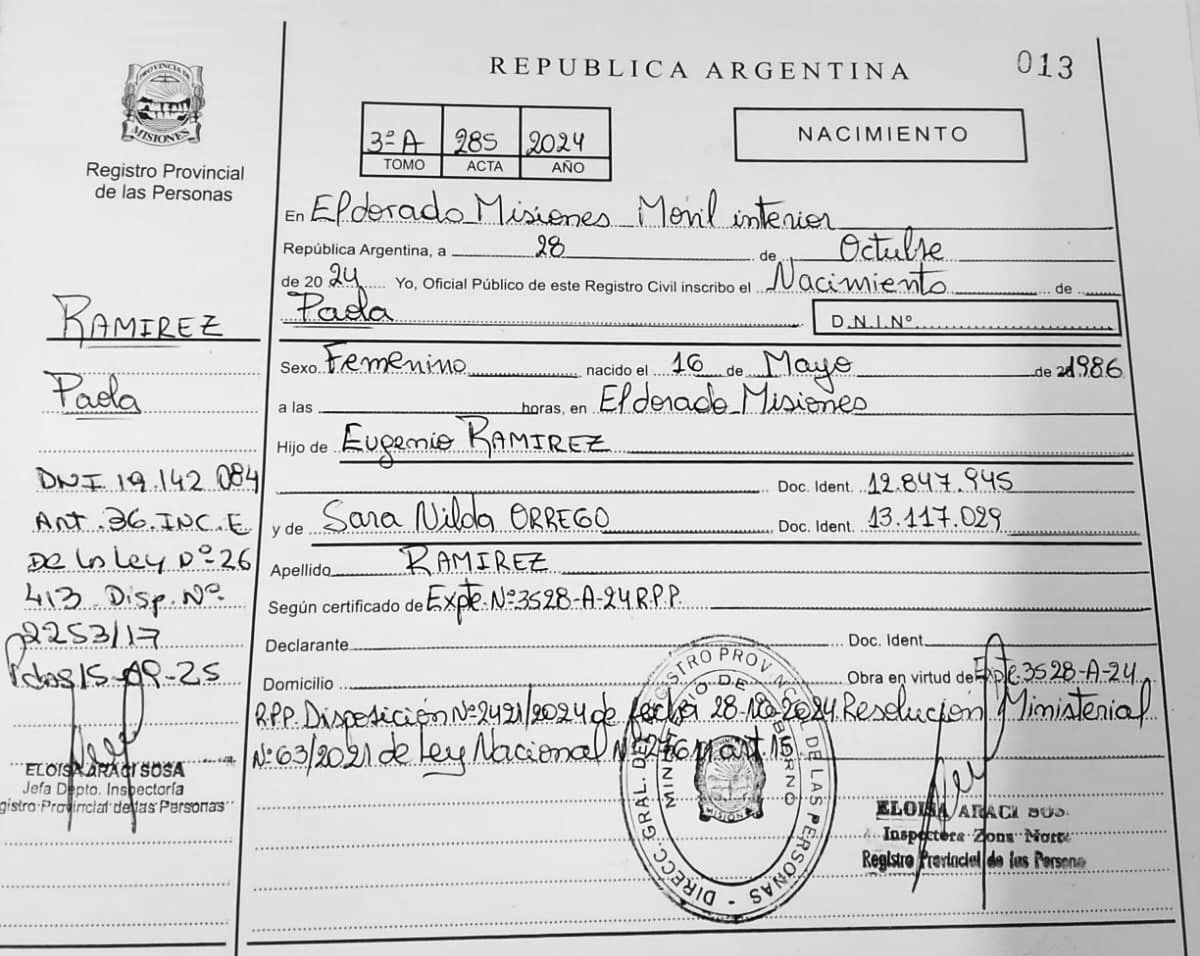 PROVINCIA DE
MISIONES
Registro Provincial
de las Personas
RAMIREZ
Paola
DNI 19.142.084
Art.36.INC.E
De la Ley Nº 26
413. Disp. Nº
2253/17
Pdas 15-09-25
ELOISA ARACI SOSA
Jefa Dpto. Inspectoría
gistro Provincial de las Personas
REPUBLICA ARGENTINA
013
3º A 285 2024
TOMO ACTA AÑO
NACIMIENTO
En Eldorado Misiones Movil interior
República Argentina, a 28 de Octubre
de 2024 Yo, Oficial Público de este Registro Civil inscribo el Nacimiento de
Paola D.N.I.Nº
Sexo Femenino nacido el 16 de Mayo de 1986
a las horas, en Eldorado Misiones
Hijo de Eugenio RAMIREZ
Doc. Ident. 12.847.945
y de Sara Nilda ORREGO Doc. Ident. 13.117.029
Apellido RAMIREZ
Según certificado de Expte. Nº 3528-A-24 R.P.P.
Declarante Doc. Ident
Domicilio Obra en virtud de Expte. 3528-A-24
R.P.P. Disposición Nº 2421/2024 de fecha 28-10-2024 Resolución Ministerial
Nº 63/2021 de Ley Nacional Nº art. 15
DIRECC. GRAL. DEL REGISTRO PROVINCIAL DE LAS PERSONAS
MINISTERIO DE GOBIERNO
MISIONES
ELOISA ARACI SOS
Inspectora Zona Norte
Registro Provincial de las Persona